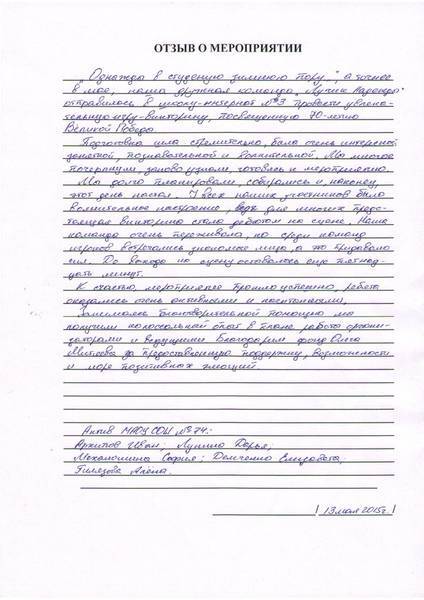 ОТЗЫВ О МЕРОПРИЯТИИ
„Однажды в студеную зимнюю пору...", а точнее
в мае, наша дружная команда „Лучики Надежды"
отправилась в школу-интернат №3 провести увлека-
тельную игру-викторину, посвященную 70-летию
Великой Победы.
Подготовка шла стремительно, была очень интересной
занятной, познавательной и волнительной. Мы многое
почерпнули, заново узнали, готовясь к мероприятию.
Мы долго планировали, собирались и наконец,
этот день настал. У всех наших участников было
волнительное настроение, ведь для многих предс-
тоящая викторина стала дебютом на сцене. Наша
команда очень переживала, но среди команд
игроков встречались знакомые лица, а это придавало
сил. До выхода на сцену оставалось еще пятнад-
цать минут.
К счастью, мероприятие прошло успешно, ребята
оказались очень активными и воспитанными,
Занимаясь благотворительной помощью мы
получили колоссальный опыт в плане работы органи-
заторами и ведущими. Благодарим фонд Олега
Митяева за предоставленную поддержку, возможности
и море позитивных эмоций.
Актив МАОУ СОШ №74:
Архипов Иван, Лупина Дарья,
Механошина София, Демченко Елизавета,
Гилязова Алена.
/ 13 мая 2015г. /